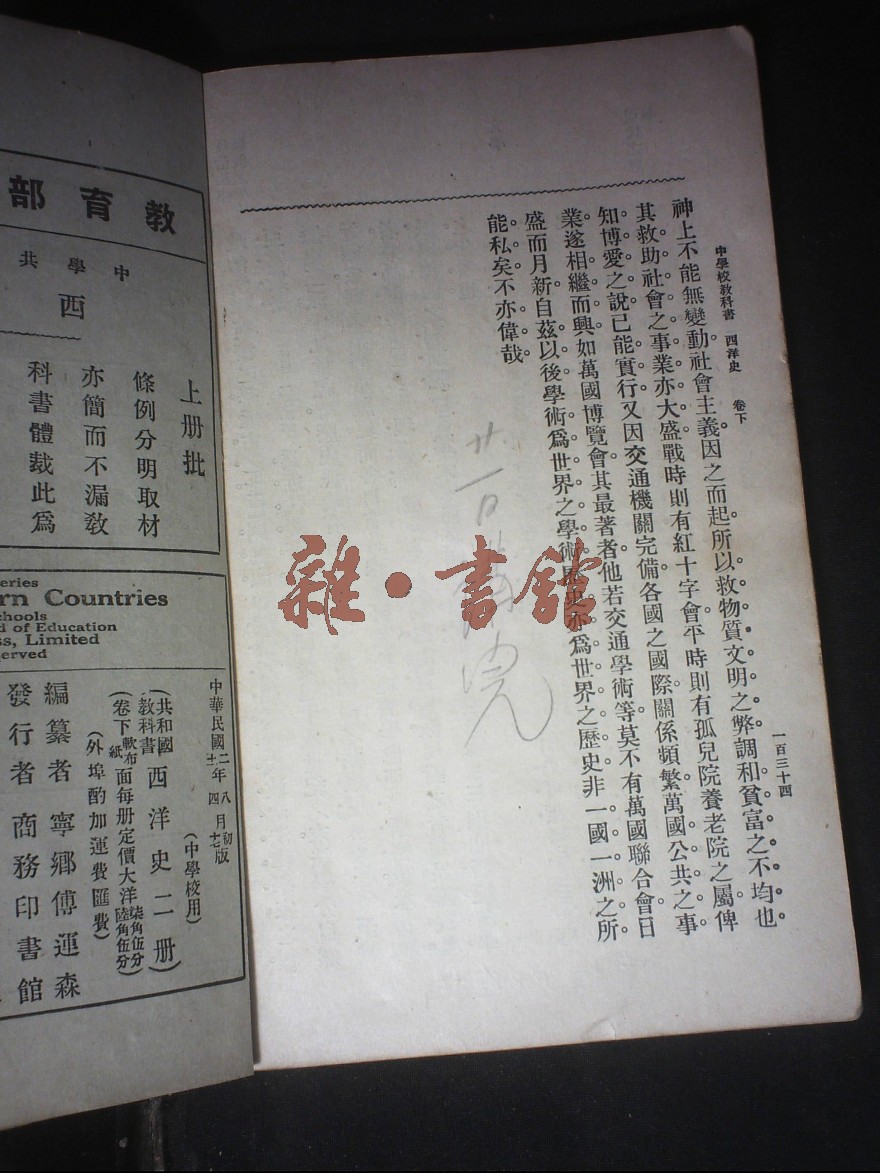 中學校教科書 西洋史 卷下 一百三十四
神上不能無變動。社會主義因之而起。所以救物質文明之弊。調和貧富之不均也。
其救助社會之事業亦大盛。戰時則有紅十字會。平時則有孤兒院養老院之屬。俾
知博愛之說已能實行。又因交通機關完備。各國之國際關係頻繁。萬國公共之事
業遂相繼而興。如萬國博覽會其最著者。他若交通學術等。莫不有萬國聯合會。日
盛而月新。自茲以後。學術爲世界之學術。歷史亦爲世界之歷史。非一國一洲之所
能私矣。不亦偉哉。
雜·書館
教育部
中學共
西
上册批
條例分明取材
亦簡而不漏敎
科書體裁此爲
eries
rn Countries
chools
d of Education
ss, Limited
served
中華民國二年八月初版
(中學校用)
(共和國教科書西洋史二册)
(卷下軟布面每册定價大洋柒角伍分)
(外埠酌加運費匯費)
編纂者 寧鄉傅運森
發行者 商務印書館